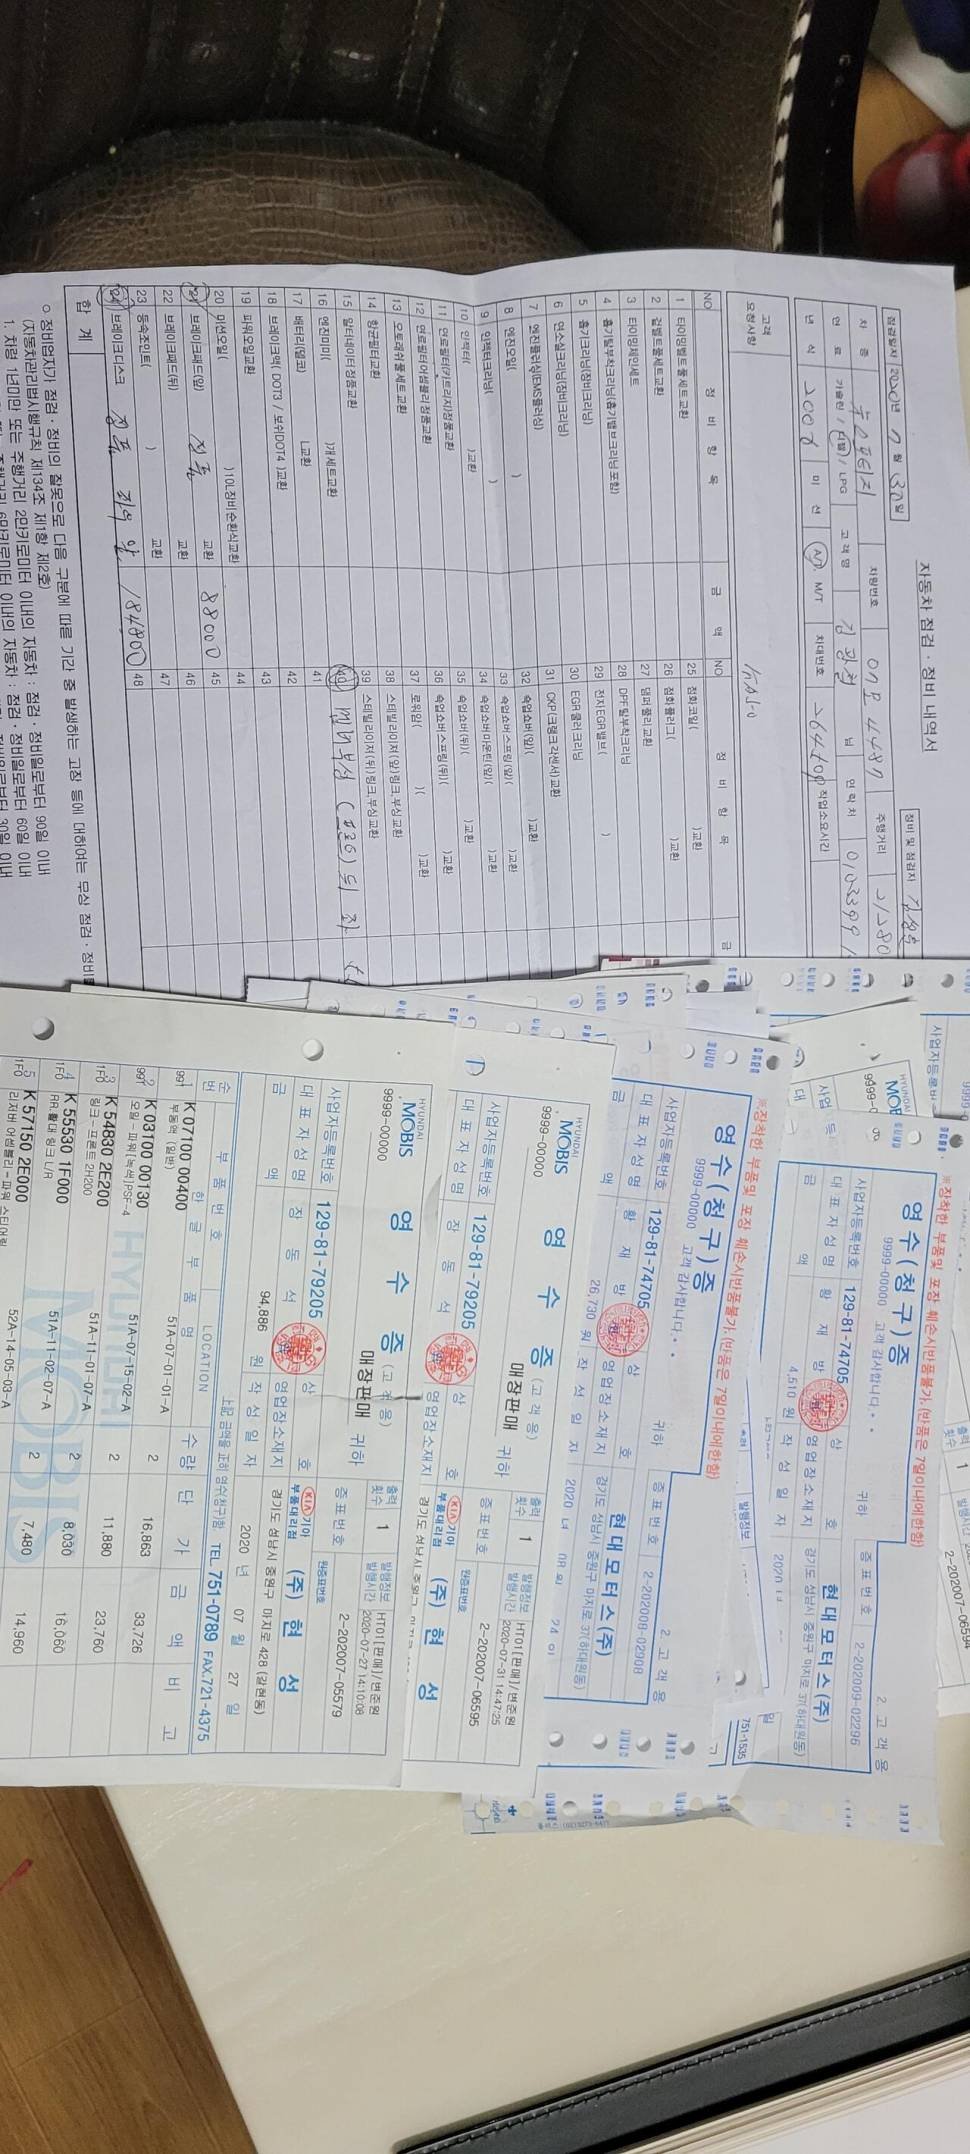 자동차 점검 · 정비 내역서
점검일자 2020년 7월 30일
정비 및 점검자
차 종
차량번호
주행거리
연 료 가솔린 / 디젤 / LPG 고객명 님 연락처
년 식 미 션 A/T, M/T 차대번호 작업소요시간
고객
요청사항
NO 정 비 항 목 금 액 NO 정 비 항 목 금
1 타이밍벨트풀세트교환
2 겉벨트풀세트교환
3 타이밍체인세트
4 흡기탈부착크리닝(흡기밸브크리닝포함)
5 흡기크리닝(장비크리닝)
6 연소실크리닝(장비크리닝)
7 엔진플러싱(EMS플러싱)
8 엔진오일( )
9 인젝터크리닝( )
10 인젝터( )교환
11 연료필터(카트리지)정품교환
12 연료필터어셈블리정품교환
13 오토래쉬풀세트교환
14 항균필터교환
15 알터네이터정품교환
16 엔진미미( )개세트교환
17 배터리(델코) L교환
18 브레이크액( DOT3 / 보쉬DOT4 )교환
19 파워오일교환
20 미션오일( )10L장비순환식교환
21 브레이크패드(앞) 정품 교환 88000
22 브레이크패드(뒤) 교환
23 등속조인트( ) 교환
24 브레이크디스크 정품 184800
25 점화코일( )교환
26 점화플러그( )교환
27 댐퍼풀리교환
28 DPF탈부착크리닝
29 전자EGR밸브( )
30 EGR쿨러크리닝
31 CKP(크랭크각센서)교환
32 쇽압쇼바(앞)( )교환
33 쇽압쇼바스프링(앞)( )교환
34 쇽압쇼바마운틴(앞)( )교환
35 쇽압쇼바(뒤)( )교환
36 쇽압쇼바스프링(뒤)( )교환
37 로워암( )( )교환
38 스테빌라이저(앞)링크,부싱교환
39 스테빌라이저(뒤)링크,부싱교환
40
41
42
43
44
45
46
47
48
합 계
○ 정비업자가 점검 · 정비의 잘못으로 다음 구분에 따른 기간 중 발생하는 고장 등에 대하여는 무상 점검 · 정비를
(자동차관리법시행규칙 제134조 제1항 제2호)
1. 차령 1년미만 또는 주행거리 2만키로미터 이내의 자동차 : 점검 · 정비일로부터 90일 이내
점검 · 정비일로부터 60일 이내
점검 · 정비일로부터 30일 이내
※장착한 부품및 포장 훼손시반품불가. (반품은 7일이내에한함)
영 수 ( 청 구 ) 증
9999-00000 고객 감사합니다.
귀하
2 고 객 용
증 표 번 호 2-202009-02296
사업자등록번호 129-81-74705 상 호 현대모터스(주)
대 표 자 성 명 황 재 방 영업장소재지 경기도 성남시 중원구 마지로 37(하대원동)
금 액 4,510 원 작 성 일 자
751-1535
※장착한 부품및 포장 훼손시반품불가. (반품은 7일이내에한함)
영 수 ( 청 구 ) 증
9999-00000 고객 감사합니다.
귀하
2 고 객 용
증 표 번 호 2-202008-02908
사업자등록번호 129-81-74705 상 호 현대모터스(주)
대 표 자 성 명 황 재 방 영업장소재지 경기도 성남시 중원구 마지로 37(하대원동)
금 액 26,730 원 작 성 일 자 2020 년 08 월 24 일
HYUNDAI
MOBIS
영 수 증 (고객용)
9999-00000 매장판매 귀하
출력횟수 1
발행정보 HT01[판매]/변준원
발행시간 2020-07-31 14:47:25
증표번호 2-202007-06595
원증표번호
사업자등록번호 129-81-79205 상 호 KIA 기아 부품대리점 (주) 현 성
대 표 자 성 명 장 동 석 영업장소재지
HYUNDAI
MOBIS
영 수 증 (고객용)
9999-00000 매장판매 귀하
출력횟수 1
발행정보 HT01[판매]/변준원
발행시간 2020-07-27 14:10:08
증표번호 2-202007-05579
원증표번호
사업자등록번호 129-81-79205 상 호 KIA 기아 부품대리점 (주) 현 성
대 표 자 성 명 장 동 석 영업장소재지 경기도 성남시 중원구 마지로 428 (갈현동)
금 액 94,886 원 작 성 일 자 2020 년 07 월 27 일
上記 금액을 正히 영수(청구)함 TEL 751-0789 FAX.721-4375
순번 부 품 번 호 한 글 부 품 명 LOCATION 수량 단 가 금 액 비 고
1 K 07100 00400 51A-07-01-01-A
991 부동액 (일반) 2 16,863 33,726
2 K 03100 00130 51A-07-15-02-A
991 오일-파워[녹색]PSF-4
3 K 54830 2E200 51A-11-01-07-A 2 11,880 23,760
1F0 링크-프론트 2H200
4 K 55530 1F000 51A-11-02-07-A 2 8,030 16,060
1F0 RR 활대 링크 L/R
5 K 57150 2E000 52A-14-05-03-A 2 7,480 14,960
1F0 리저버 어셈블리-파워 스티어링